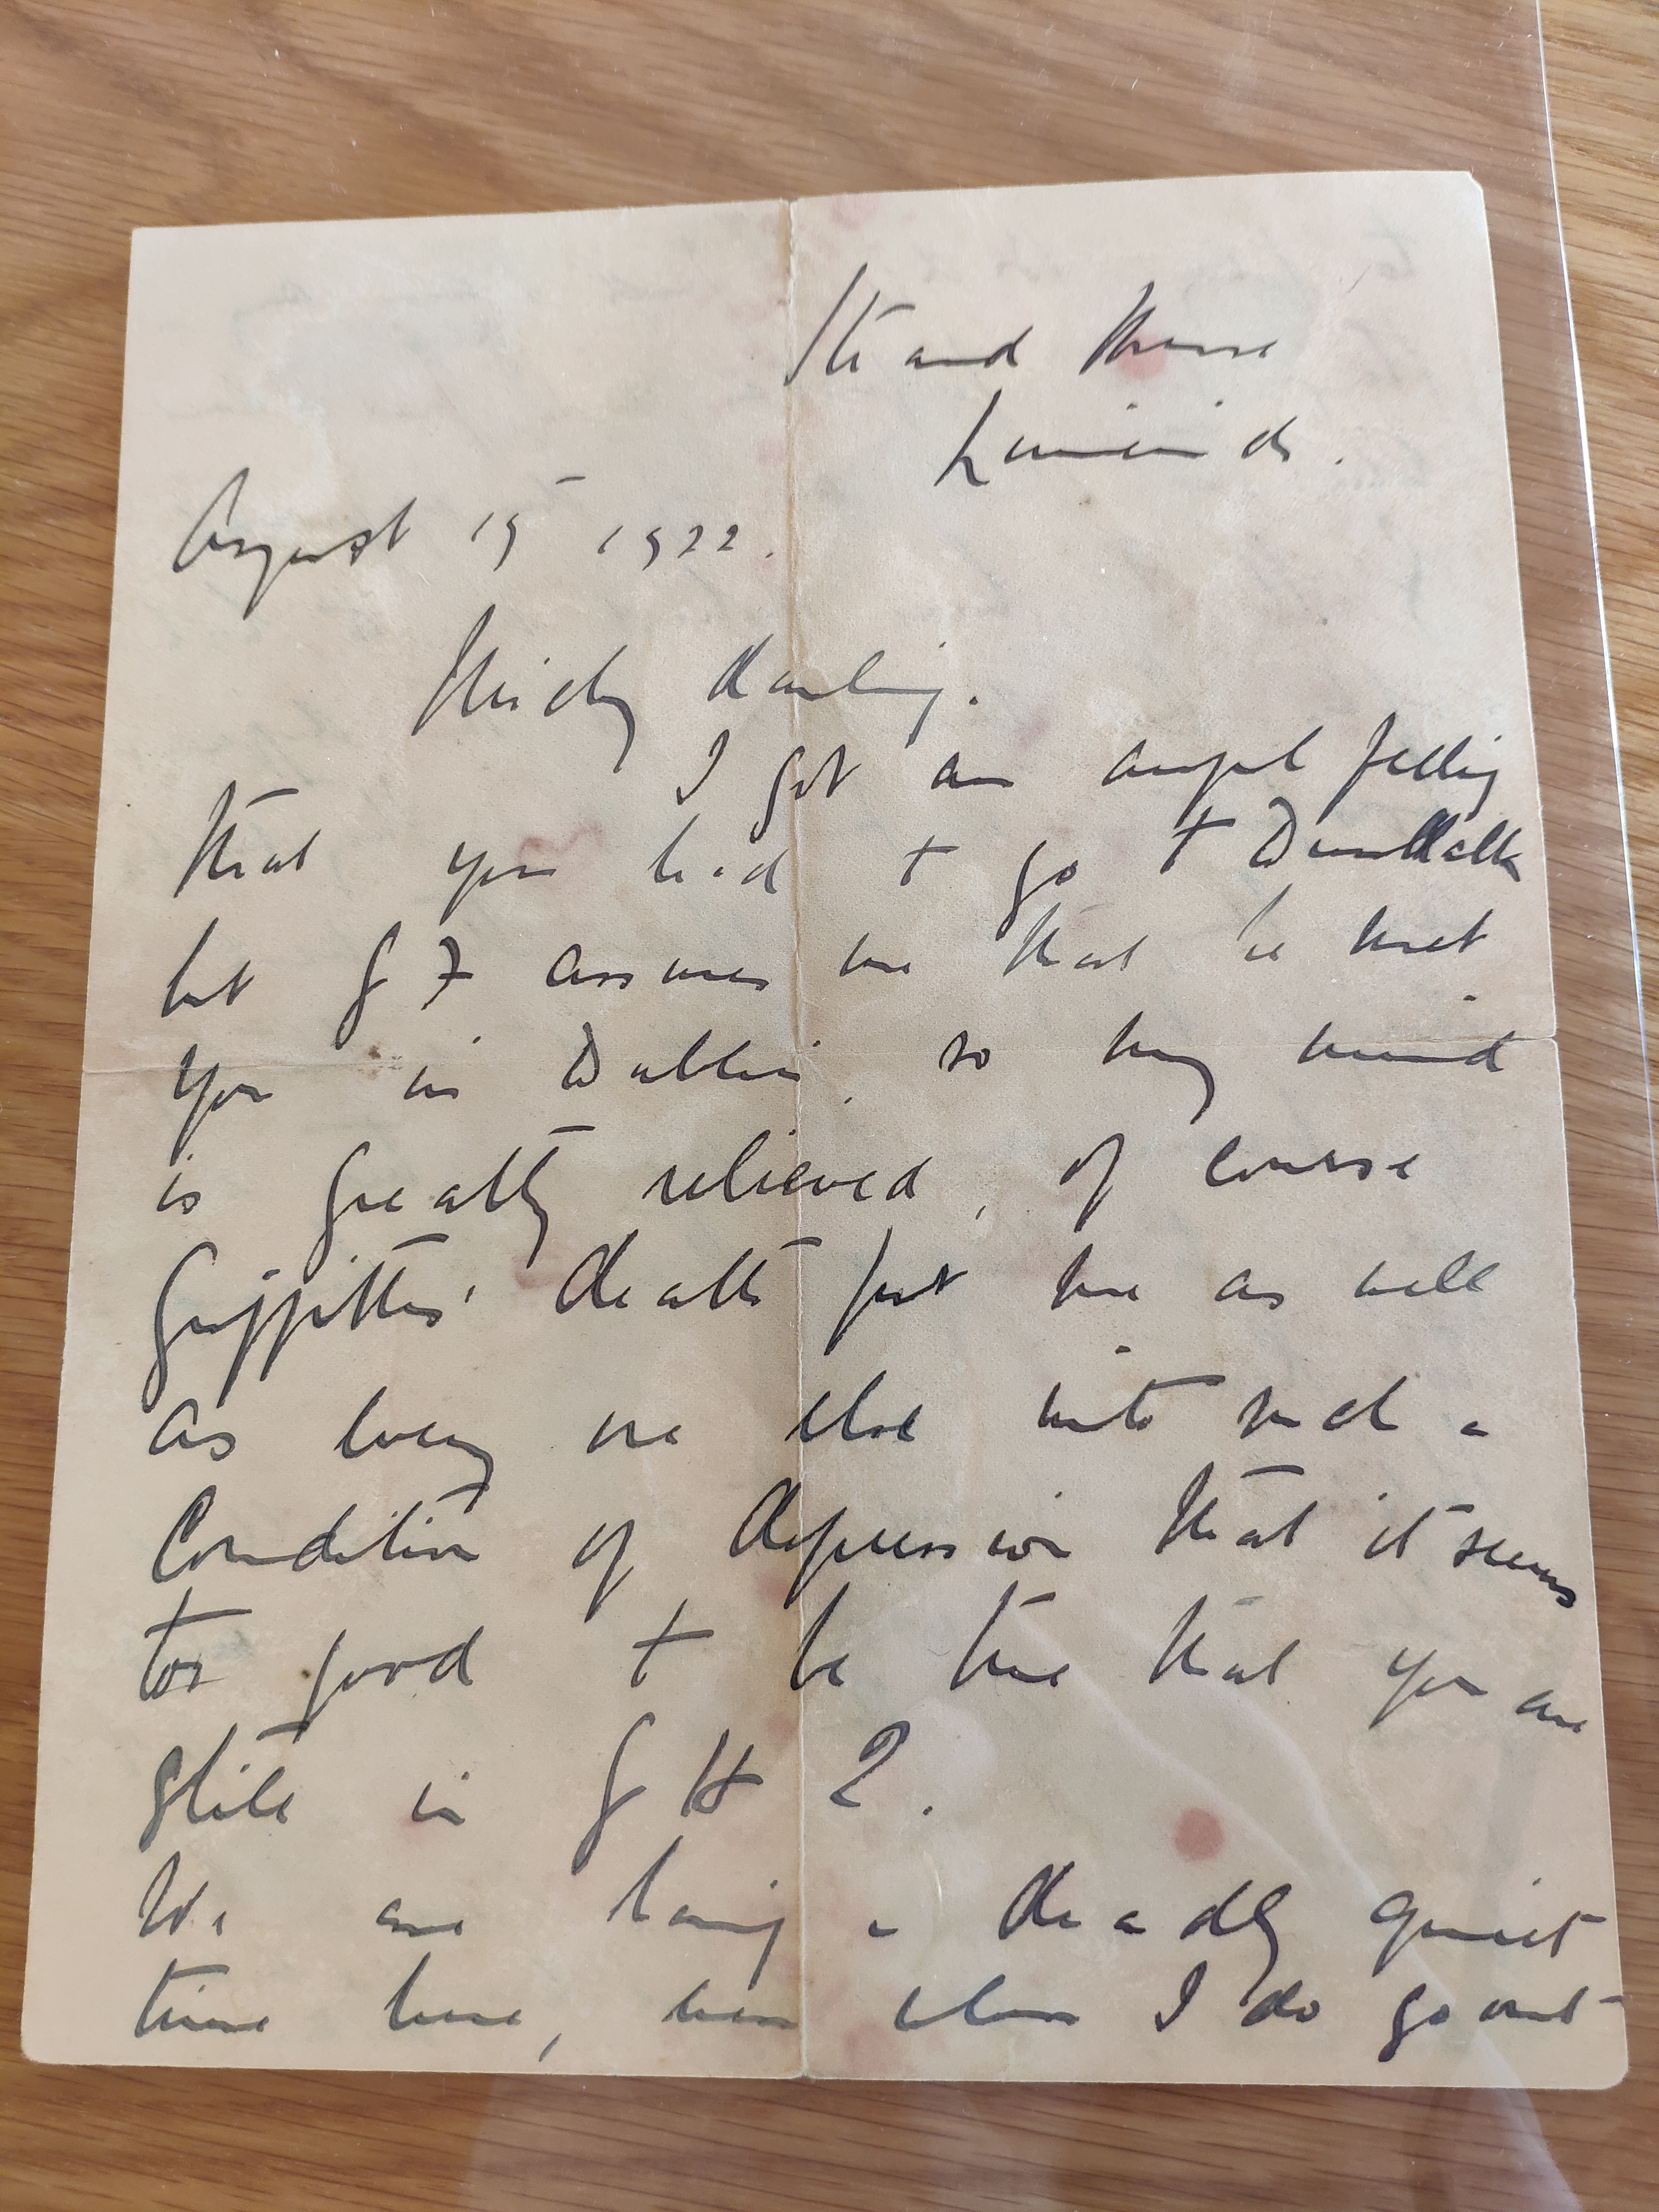 Strand House
Limerick.
August 15 1922.
Micky darling.
I got an awful feeling
that you had to go to Dundalk
but G 7 assures me that he met
you in Dublin, so my mind
is greatly relieved, of course
Griffiths' death put me as well
as every one else into such a
condition of depression that it seems
too good to be true that you are
still in G H Q.
We are having a deadly quiet
time here, even when I do go out